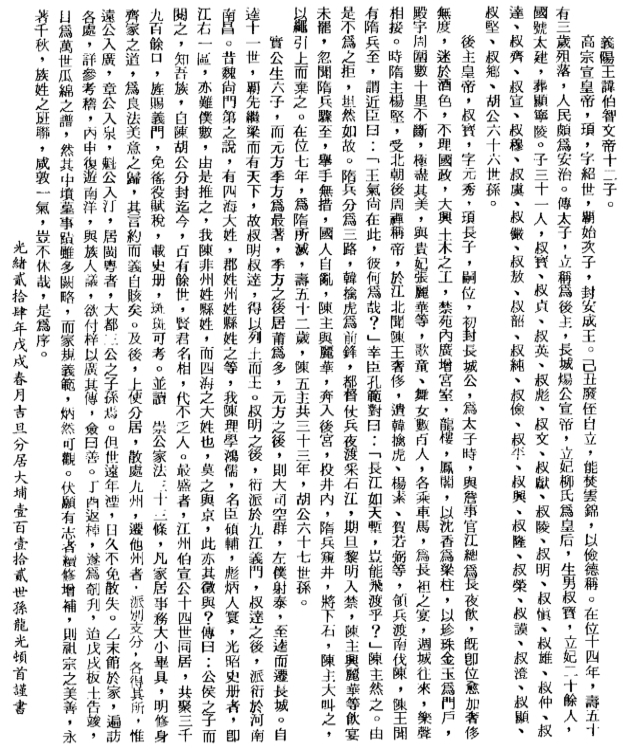 義陽王諱伯智文帝十二子。
高宗宣皇帝，頊，字紹世，覇始次子，封安成王。己丑廢侄自立，能焚雲錦，以儉德稱。在位十四年，壽五十
有三歲殂落，人民頗為安治。傳太子，立稱為後主，長城煬公宣帝，立妃柳氏為皇后，生男叔寶，立妃二十餘人，
國號太建，葬顯寧陵。子三十一人，叔寶、叔貞、叔英、叔彪、叔文、叔獻、叔陵、叔明、叔慎、叔雄、叔仲、叔
達、叔齊、叔宣、叔穆、叔虞、叔儼、叔敖、叔韶、叔純、叔儉、叔平、叔興、叔隆、叔榮、叔謨、叔澄、叔顯、
叔堅、叔鄉、胡公六十六世孫。
後主皇帝，叔寶，字元秀，頊長子，嗣位，初封長城公，為太子時，與詹事官江總為長夜飲，既即位愈加奢侈
無度，迷於酒色，不理國政，大興土木之工，禁苑內廣增宮室，龍樓，鳳閣，以沈香為梁柱，以珍珠金玉為門戶，
殿宇周圍數十里不斷，極盡其美，與貴妃張麗華等，歌童、舞女數百人，各乘車馬，為長袓之宴，週城往來，樂聲
相接。時隋主楊堅，受北朝後周禪稱帝，於江北聞陳王奢侈，遣韓擒虎、楊素、賀若弼等，領兵渡南伐陳，陳王聞
有隋兵至，謂近臣曰：「王氣尚在此，彼何為哉？」幸臣孔範對曰：「長江如天塹，豈能飛渡乎？」陳主然之。由
是不為之拒，坦然如故。隋兵分為三路，韓擒虎為前鋒，都督伏兵夜渡采石江，期旦黎明入禁，陳主與麗華等飲宴
未罷，忽聞隋兵驟至，舉手無措，國人自亂，陳主與麗華，奔入後宮，投井內，隋兵窺井，將下石，陳主大叫之，
以繩引上而棄之。在位七年，為隋所滅，壽五十二歲，陳五主共三十三年，胡公六十七世孫。
實公生六子，而元方季方為最著，季方之後居莆為多，元方之後，則大司空群，左僕射泰，至逵而遷長城。自
逵十一世，覇先繼梁而有天下，故叔明叔達，得以列土而王。叔明之後，衍派於九江義門，叔達之後，派衍於河南
南昌。昔魏尚門第之說，有四海大姓，郡姓州姓縣姓之等，我陳理學鴻儒，名臣碩輔，彪炳人寰，光昭史册者，即
江右一區，亦難僕數，由是推之，我陳非州姓縣姓，而四海之大姓也，莫之與京，此亦其徵與？傳曰：公侯之子而
閱之，知吾族，自陳胡公分封迄今，占有餘世，賢君名相，代不乏人。最盛者，江州伯宣公十四世同居，共聚三千
九百餘口，旌賜義門，免徭役賦稅，載史册，斑斑可考。並讀 崇公家法三十三條，凡家居事務大小畢具，明修身
齊家之道，為良法美意之歸，其言約而義自賅矣。及後，上使分居，散處九州，遷他州者，派別支分，各得其所，惟
遠公入廣，章公入泉，魁公入汀，居閩粵者，大都三公之子孫焉。但世遠年湮，日久不免散失。乙未館於家，遍訪
各處，詳參考稽，丙申復遊南洋，與族人議，欲付梓以廣其傳，僉曰善。丁酉返棹，遂為剞刂，迨戊戌板土告竣，
曰為萬世瓜綿之譜，然其中墳塋事蹟雖多闕略，而家規義範，炳然可觀。伏願有志者續修增補，則祖宗之美善，永
著千秋，族姓之班聯，咸敦一氣，豈不休哉，是為序。
光緒貳拾肆年戊戌春月吉旦分居大埔壹百壹拾貳世孫龍光頓首謹書